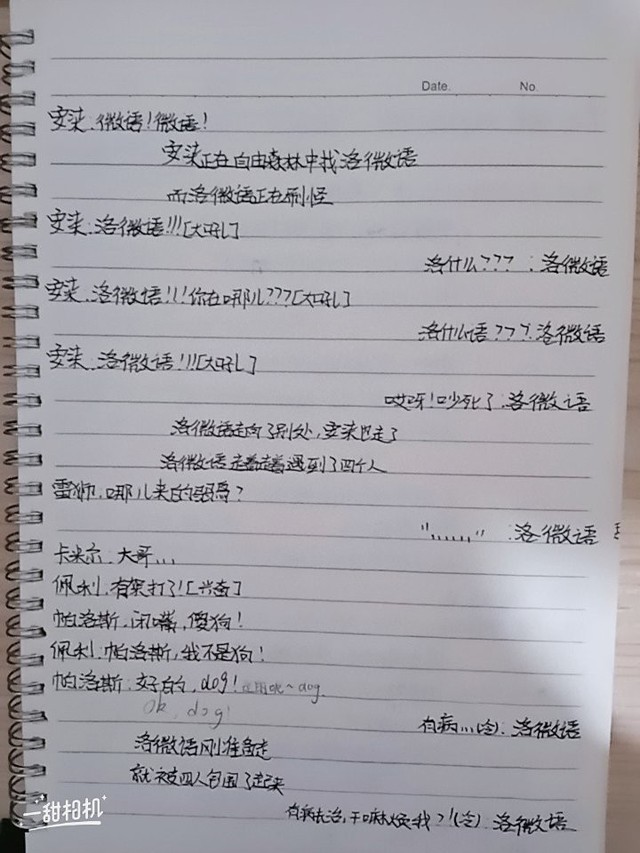 Date.  No
安柒:微语!微语!
安柒正在自由森林中找洛微语
而洛微语正在刷怪
安柒:洛微语!!![大吼]
洛什么??? :洛微语
安柒:洛微语!!!你在哪儿???[大吼]
洛什么语???:洛微语
安柒:洛微语!!![大吼]
哎呀!吵死了:洛微语
洛微语走向了别处,安柒也走了
洛微语走着走着遇到了四个人
雷狮:哪儿来的弱兽?
"......" :洛微语
卡米尔:大哥...
佩利:有架打了![兴奋]
帕洛斯:闭嘴,傻狗!
佩利:帕洛斯,我不是狗!
帕洛斯:好的,dog! ok~dog
ok, dog!
有病...(冷):洛微语
洛微语刚准备走
就被四人包围了起来
有病去治,干嘛烦我?!(冷):洛微语
一甜相机